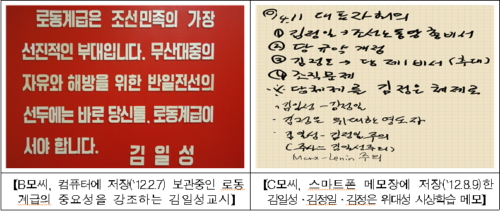 로동계급은 조선민족의 가장
선진적인 부대입니다. 무산대중의
자유와 해방을 위한 반일전선의
선두에는 바로 당신들, 로동계급이
서야 합니다.
김일성
4.11 대표자회의
① 김정일 → 조선노동당 총비서
② 당 규약 개정
③ 김정은 → 당 제1비서 (추대)
④ 조직문제
※ 당체제를 김정은 체제로
김일성 - 김정일
김정은 위대한 영도자
김일성 - 김정일주의
Marx-Lenin 주의
【B모씨, 컴퓨터에 저장('12.2.7) 보관중인 로동
계급의 중요성을 강조하는 김일성교시】
【C모씨, 스마트폰 메모장에 저장('12.8.9)한
김일성·김정일·김정은 위대성 사상학습 메모】